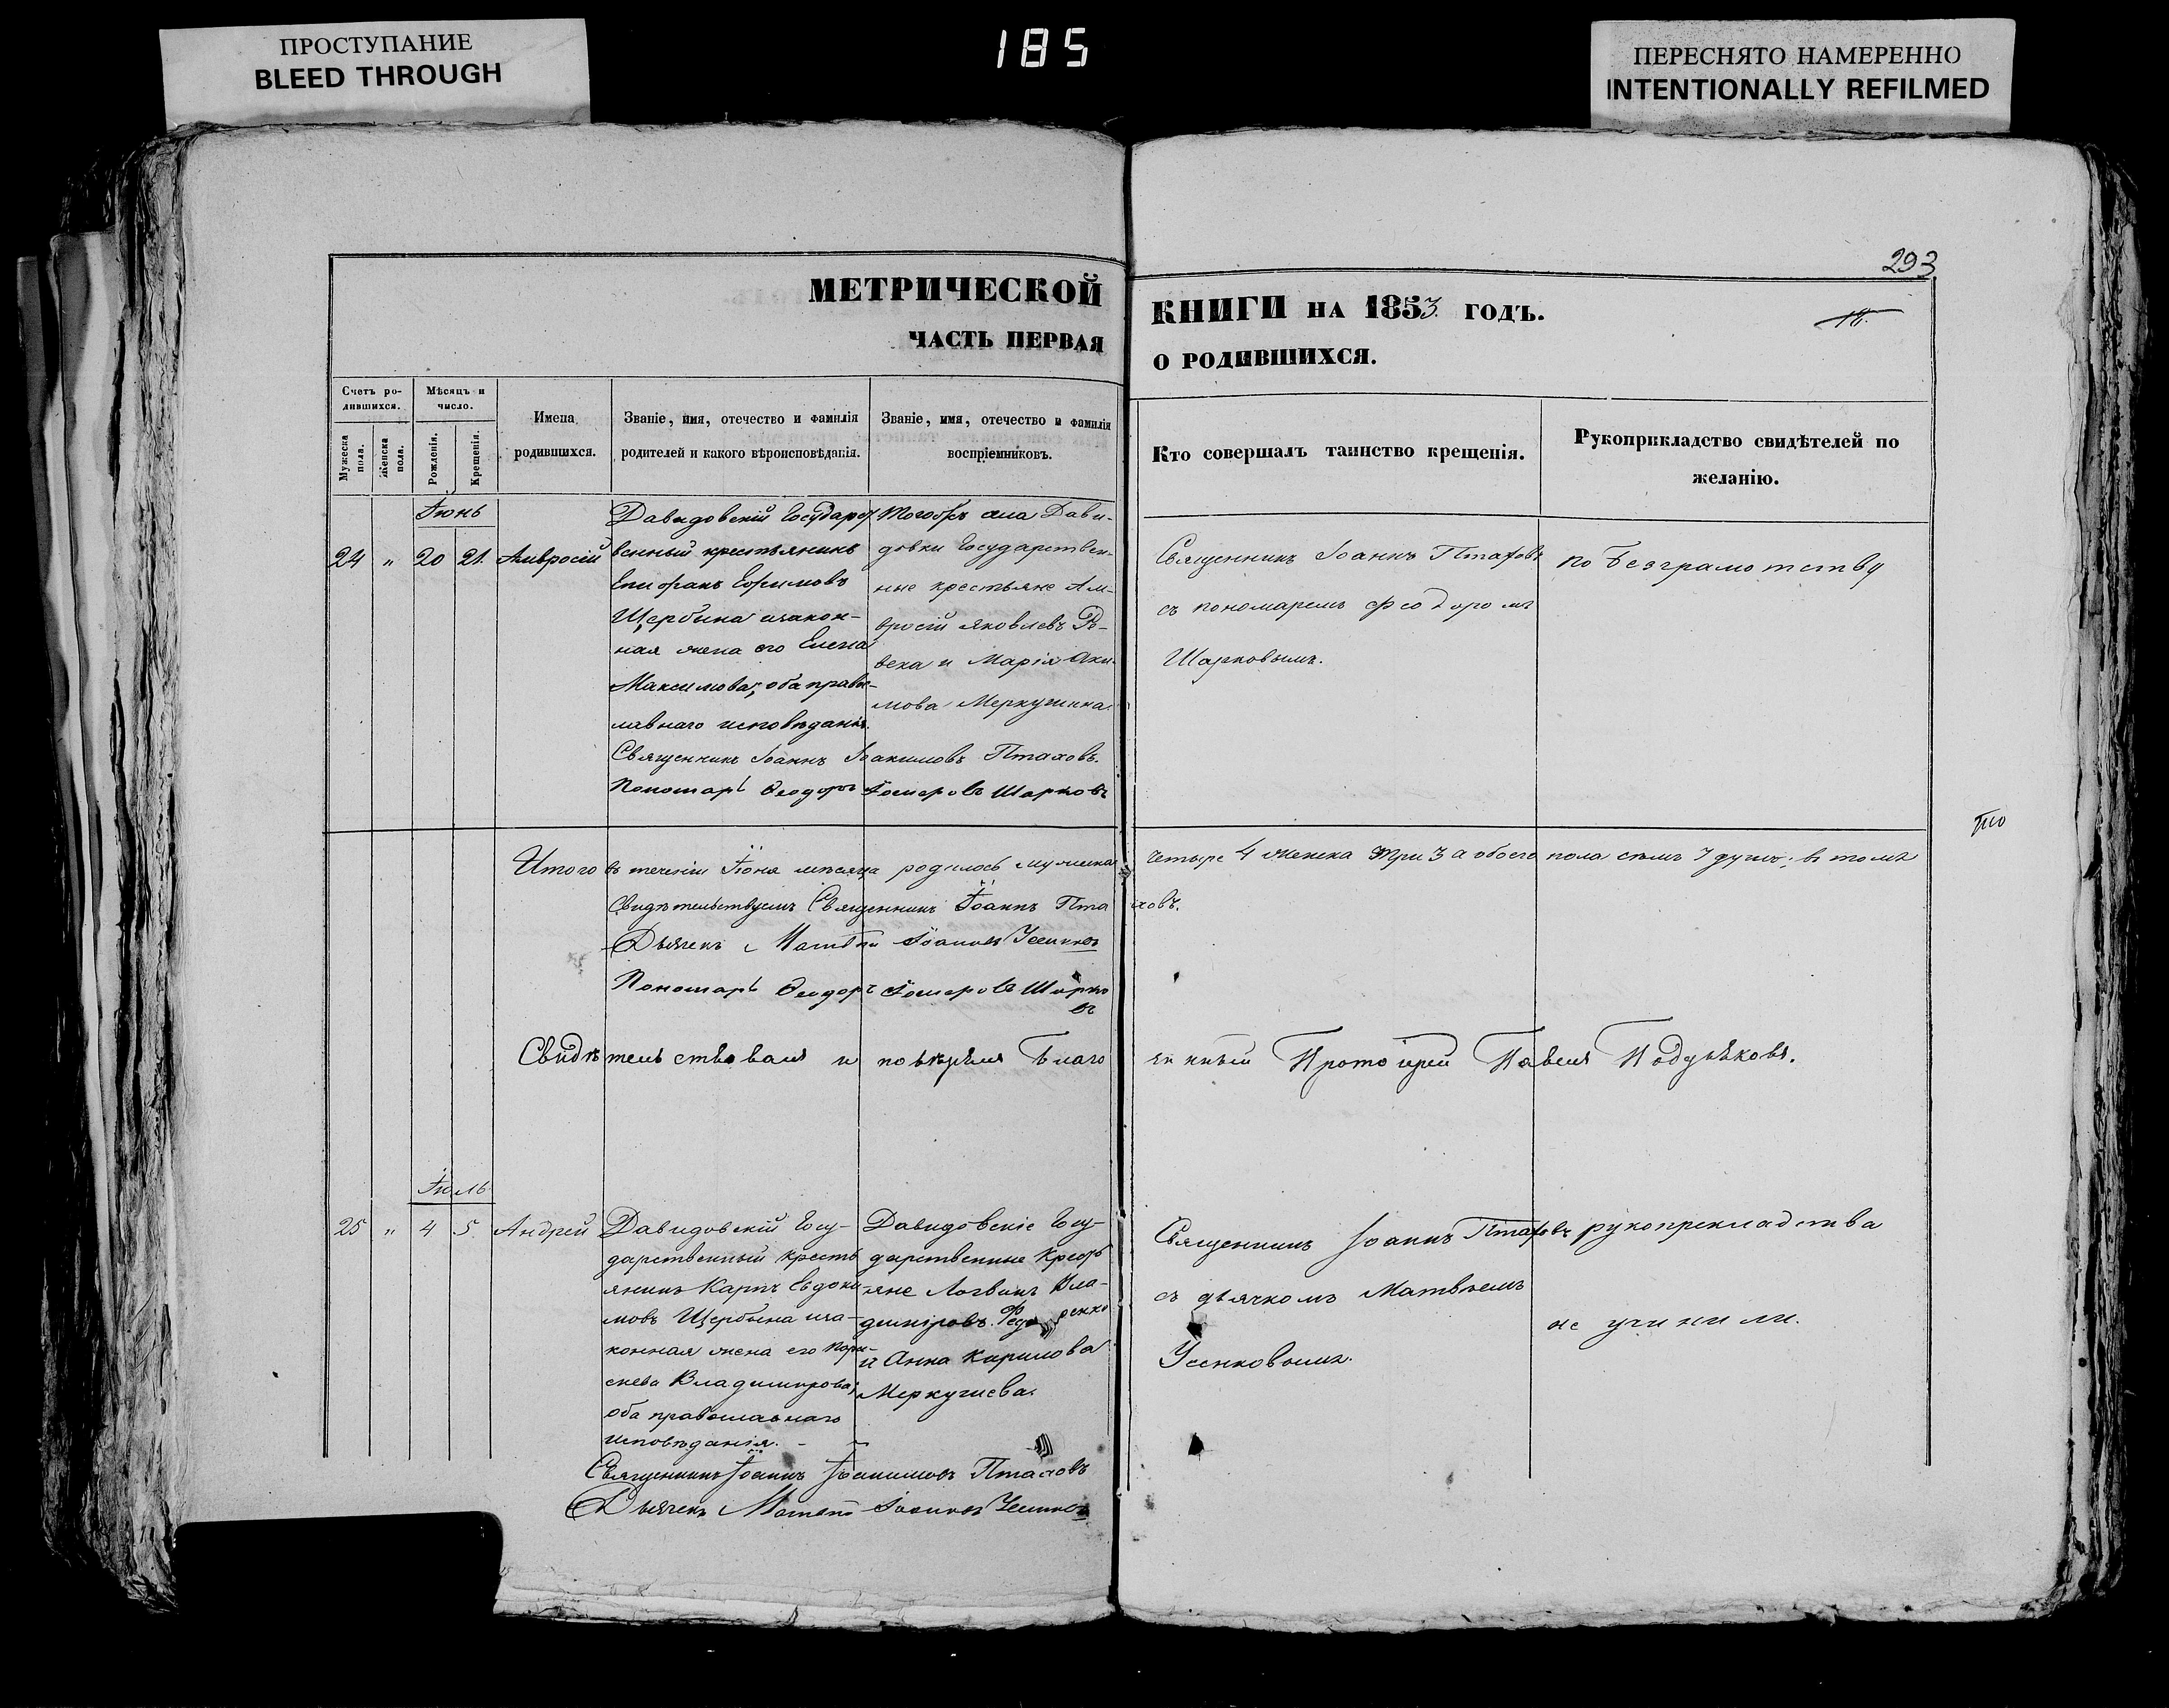 ПРОСТУПАНИЕ
BLEED THROUGH
185
ПЕРЕСНЯТО НАМЕРЕННО
INTENTIONALLY REFILMED
293
МЕТРИЧЕСКОЙ КНИГИ НА 1853. ГОДЪ.
18.
ЧАСТЬ ПЕРВАЯ О РОДИВШИХСЯ.
Счетъ родившихся.
Мѣсяцъ и число.
Мужеска пола.
Женска пола.
Рожденія.
Крещенія.
Имена родившихся.
Званіе, имя, отечество и фамилія родителей и какого вѣроисповѣданія.
Званіе, имя, отечество и фамилія воспріемниковъ.
Кто совершалъ таинство крещенія.
Рукоприкладство свидѣтелей по желанію.
Іюнь
24 " 20 21. Амвросій
Давидовскій Государст
венный крестьянинъ
Епифанъ Ефимовъ
Щербина изакон-
ная жена его Елена
Максимова; оба право-
лавнаго исповѣданія.
Тогоже села Дави-
довки Государствен-
ные крестьяне Ам-
вросій Яковлевъ Ре-
века и Марія Аки-
мова Меркушина.
Священникъ Іоаннъ Птаховъ
съ пономаремъ Феодоромъ
Шарковымъ.
по безграмотству
Священникъ Іоаннъ Іоакимовъ Птаховъ.
Пономарь Ѳеодоръ Шарковъ
Итого въ теченіи Іюня мѣсяца родилось мужеска четыре 4 женска три 3 а обоего пола семь 7 душъ; въ томъ
Свидѣтельствуемъ Священникъ Іоаннъ Птаховъ.
Дьячекъ Матвѣй Іоанновъ Усенковъ
Пономарь Ѳеодоръ Шарко
въ
Свидѣтельствовалъ и повѣрялъ Благо чинный Протоіерей Павелъ
Іюль
25 " 4 5. Андрей
Давидовскій Госу-
дарственный кресть
янинъ Карпъ Евдоки-
мовъ Щербина иза-
конная жена его Пара-
скева Владимирова;
оба православнаго
исповѣданія.
Давидовскіе Госу-
дарственные Кресть
яне Логвинъ Вла-
диміровъ Федоренко
и Анна Кирилова
Меркушева.
Священникъ Іоаннъ Птаховъ
съ дьячкомъ Матвѣемъ
Усенковымъ.
рукоприкладства
не учинили.
Священникъ Іоаннъ Іоакимовъ Птаховъ
Дьячекъ Матвѣй Іоанновъ Усенковъ